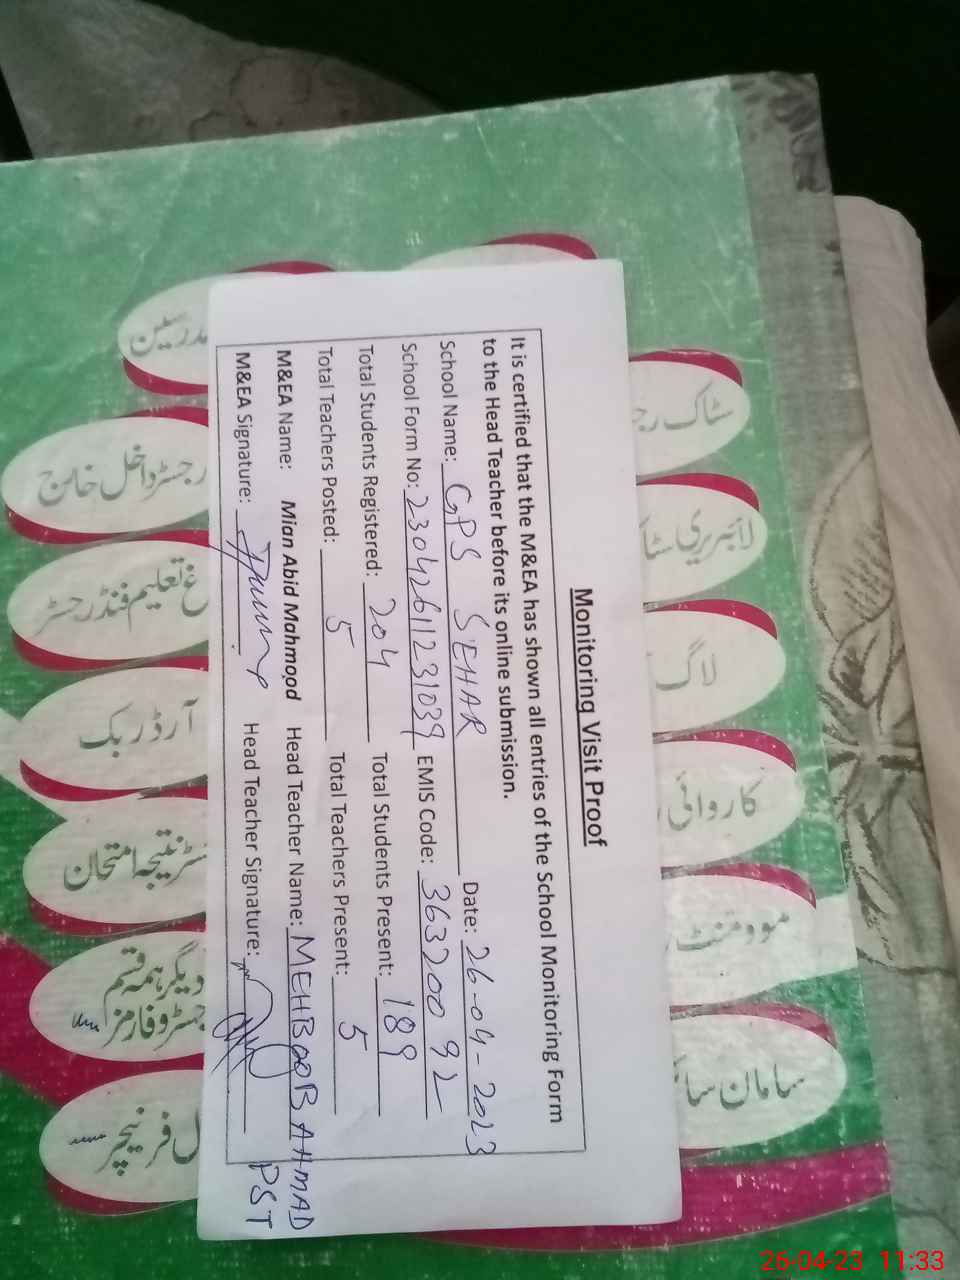 Monitoring Visit Proof
It is certified that the M&EA has shown all entries of the School Monitoring Form
to the Head Teacher before its online submission.
School Name: GPS SEHAR Date: 26-04-2023
School Form No: 23042611231039 EMIS Code: 36320092
Total Students Registered: 204 Total Students Present: 189
Total Teachers Posted: 5 Total Teachers Present: 5
M&EA Name: Mian Abid Mahmood Head Teacher Name: MEHBOOB AHMAD
M&EA Signature: Head Teacher Signature: PST
سٹاک
لائبریری
لاگ
کاروائی
موومنٹ
سامان
مدرسین
رجسٹر داخل خارج
تعلیم فنڈ رجسٹر
آرڈر بک
نتیجہ امتحان
دیگر ہمہ قسم
فارمز
فرنیچر
26-04-23 11:33